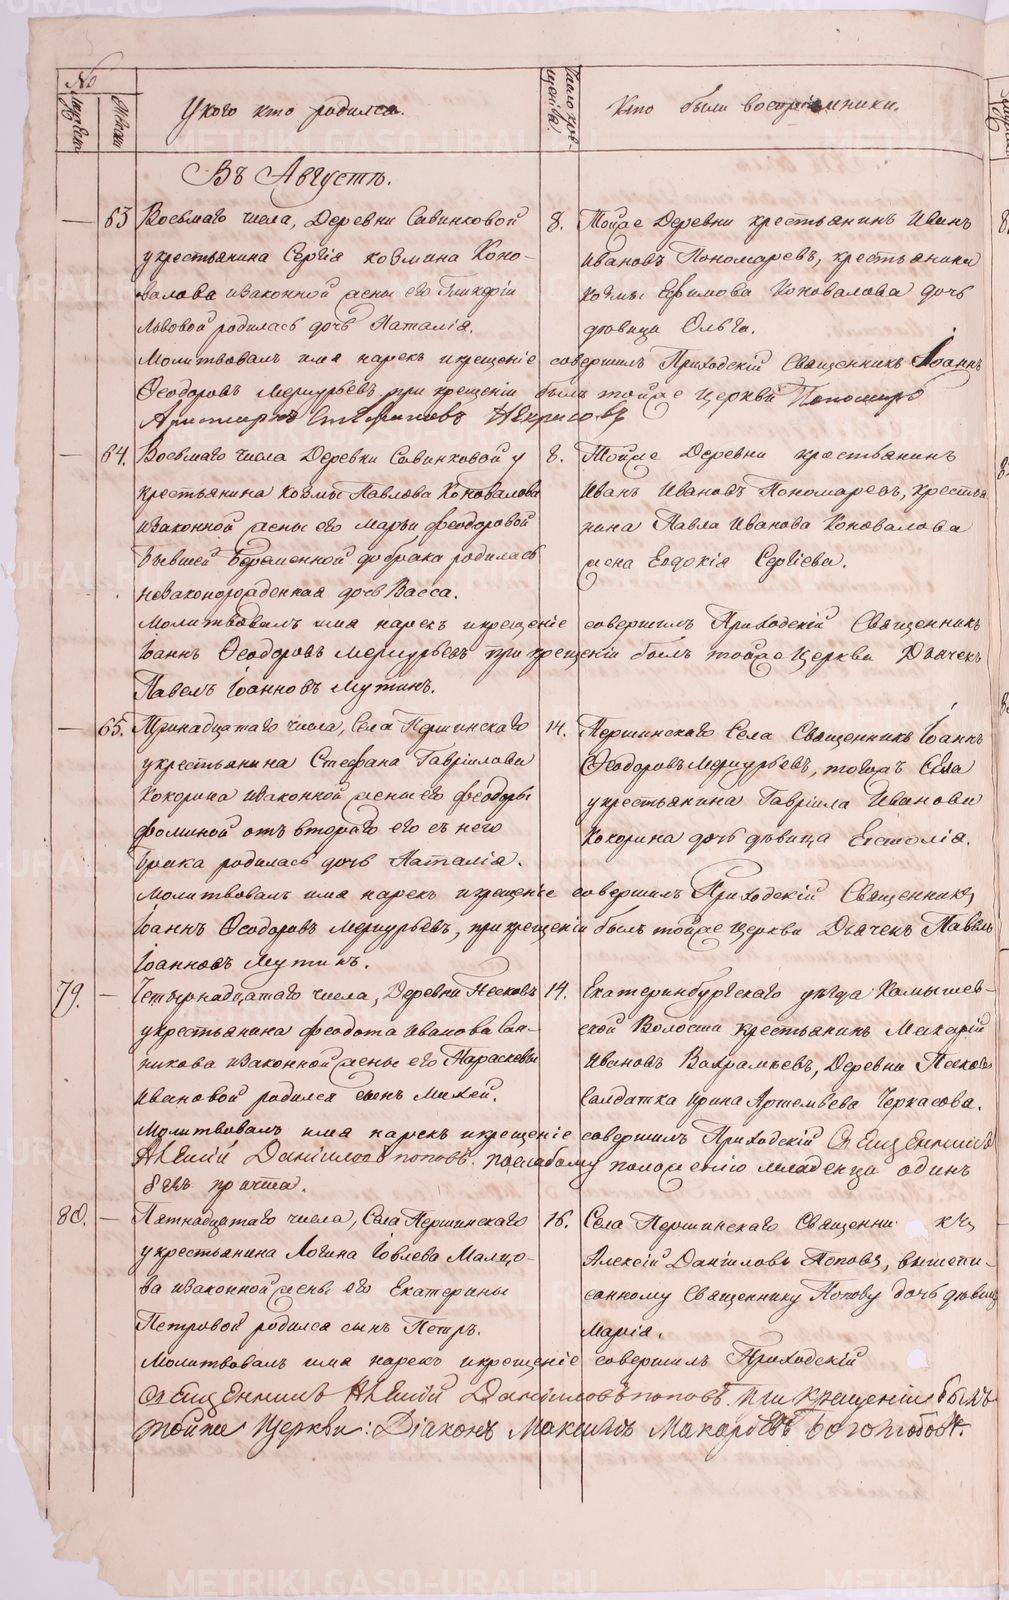 №
Мужеск
Женски
У кого кто родился.
Число крещенія.
Кто были восприемники.
Въ Августѣ.
63 Восьмаго числа, Деревни Савинковой
у крестьянина Сергія Козмина Коно-
валова и законной жены его Гликеріи
Львовой родилась дочь Наталія.
8. Тойже Деревни крестьянинъ Иванъ
Ивановъ Пономаревъ, крестьянина
Козмы Ефимова Коновалова дочь
дѣвица Ольга.
Молитвовалъ имя нарекъ и крещеніе совершилъ Приходскій Священникъ Іоаннъ
Ѳеодоровъ Меркурьевъ при крещеніи былъ тойже церкви Пономарь
Стефановъ Некрасовъ
64. Восьмаго числа Деревни Савинковой у
крестьянина Козмы Павлова Коновалова
и законной жены его Марьи Феодоровой
бывшей беременной до брака родилась
незаконорожденная дочь Васса.
8. Тойже Деревни крестьянинъ
Иванъ Ивановъ Пономаревъ, крестья
нина Павла Иванова Коновалова
жена Евдокія Сергіева.
Молитвовалъ имя нарекъ и крещеніе совершилъ Приходскій Священникъ
Іоаннъ Ѳеодоровъ Меркурьевъ при крещеніи былъ тойже Церкви Дьячекъ
Павелъ Іоанновъ Мутинъ.
65. Тринадцатаго числа, Села Першинскаго
у крестьянина Стефана Гавріилова
Кокорина и законной жены его Феодоры
Фоминой отъ втораго его съ нею
брака родилась дочь Наталія.
14. Першинскаго Села Священникъ Іоаннъ
Ѳеодоровъ Меркурьевъ, тогожъ Села
у крестьянина Гавріила Иванова
Кокорина дочь дѣвица
Молитвовалъ имя нарекъ и крещеніе совершилъ Приходскій Священникъ
Іоаннъ Ѳеодоровъ Меркурьевъ, при крещеніи былъ тойже Церкви Дьячекъ Павелъ
Іоанновъ Мутинъ.
79. Четырнадцатаго числа, Деревни Песковъ
у крестьянина Феодота Иванова Сан-
никова и законной жены его Параскевы
Ивановой родился сынъ Михей.
14. Екатеринбургскаго уѣзда Камышев-
ской Волости крестьянинъ Макарій
Ивановъ Вахрамѣевъ, Деревни Песковъ
Солдатка Ирина Артемьева Черкасова.
Молитвовалъ имя нарекъ и крещеніе совершилъ Приходскій Священникъ
Алексій Даніиловъ Поповъ. по слабому положенію младенца одинъ
безъ причта.
80. Пятнадцатаго числа, Села Першинскаго
у крестьянина Логина Іовлева Малцо-
ва и законной жены его Екатерины
Петровой родился сынъ Петръ.
16. Села Першинскаго Священникъ
Алексій Даніиловъ Поповъ, вышепи-
санному Священнику Попову дочь дѣвица
Марія.
Молитвовалъ имя нарекъ и крещеніе совершилъ Приходскій
Священникъ Алексій Даніиловъ Поповъ. При крещеніи былъ
тойже Церкви: Діаконъ Максимъ Макарьевъ Боголюбовъ.
METRIKI.GASO-URAL.RU